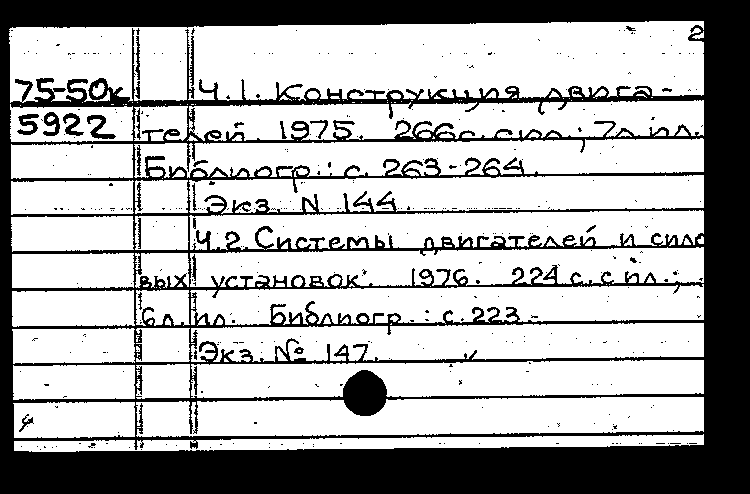 2
75-50к Ч.1. Конструкция двига-
5922 телей. 1975. 266с. с ил.; 7л. ил.
Библиогр.: с. 263-264.
Экз. N 144.
Ч.2. Системы двигателей и сило
вых установок. 1976. 224 с. с ил.;
6л. ил. Библиогр.: с. 223-
Экз. № 147.